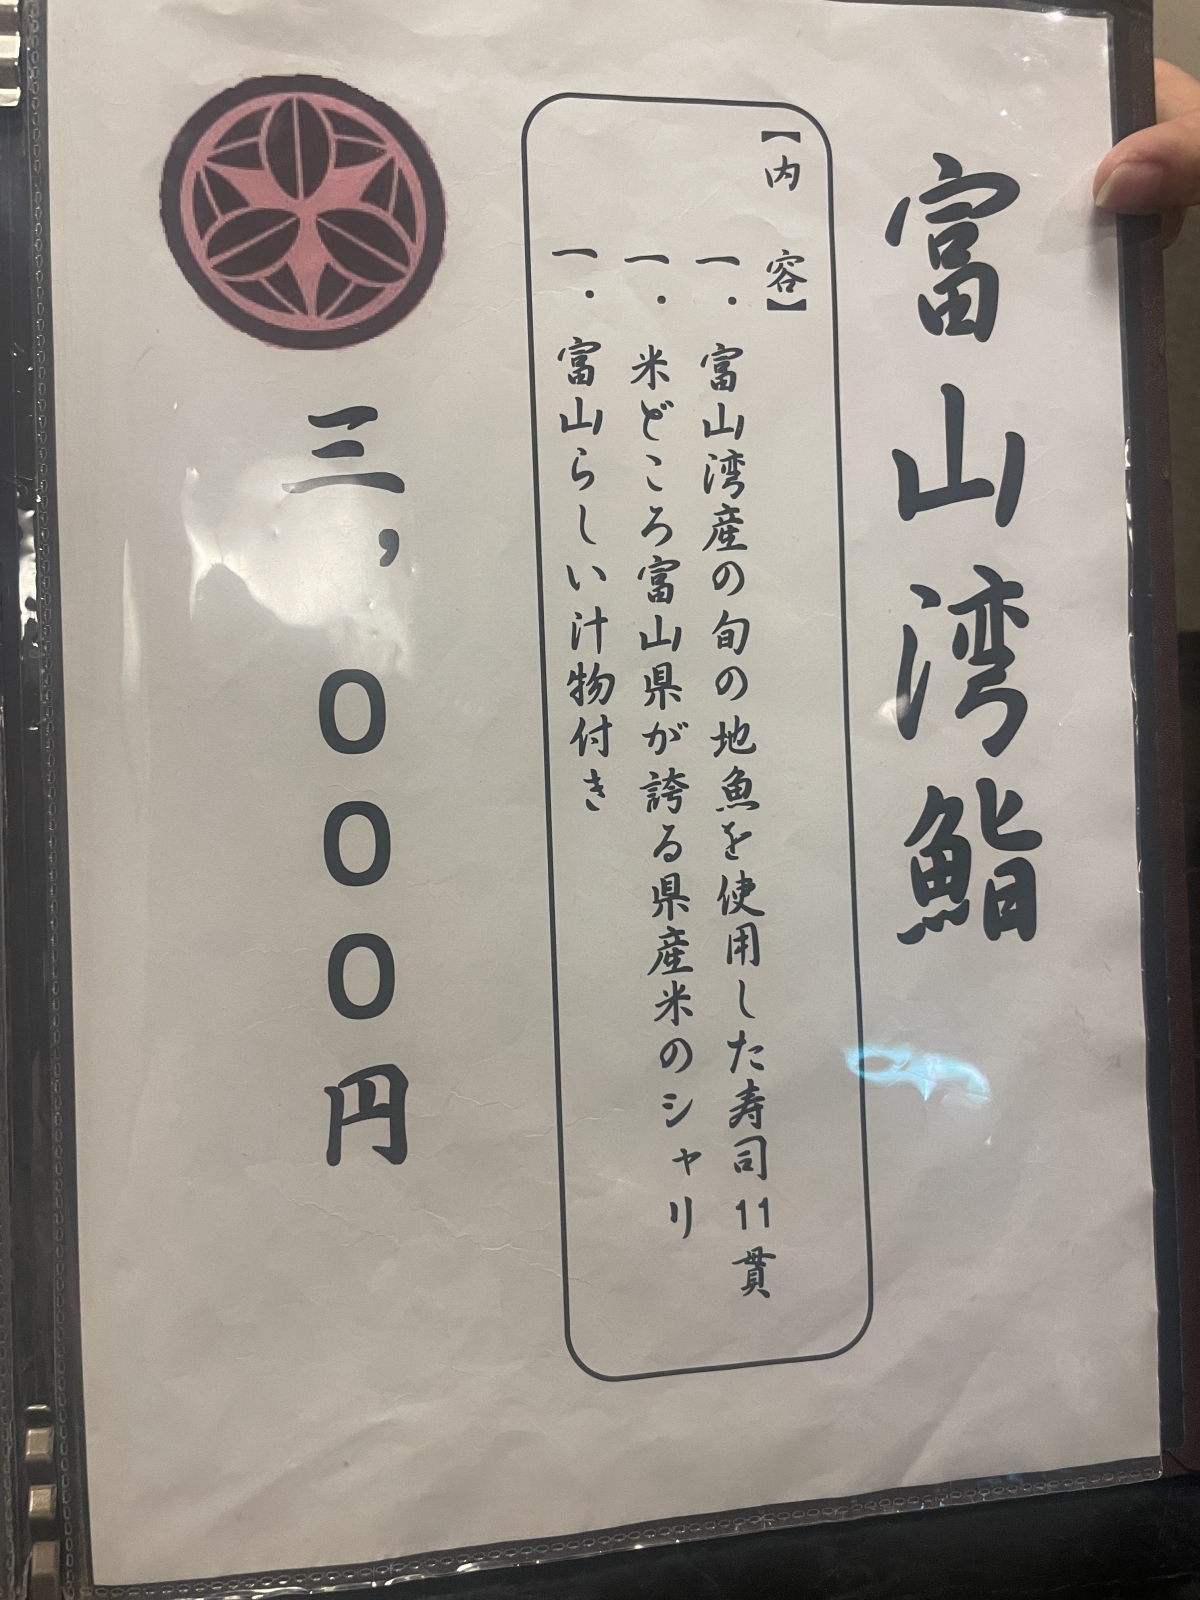 富山湾鮨
【内 容】
一. 富山湾産の旬の地魚を使用した寿司11貫
一. 米どころ富山県が誇る県産米のシャリ
一. 富山らしい汁物付き
三,000円